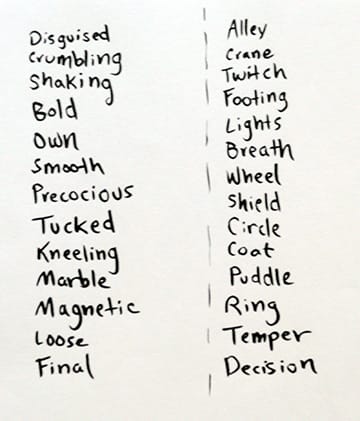 Disguised
Crumbling
Shaking
Bold
Own
Smooth
Precocious
Tucked
Kneeling
Marble
Magnetic
Loose
Final
Alley
Crane
Twitch
Footing
Lights
Breath
Wheel
Shield
Circle
Coat
Puddle
Ring
Temper
Decision